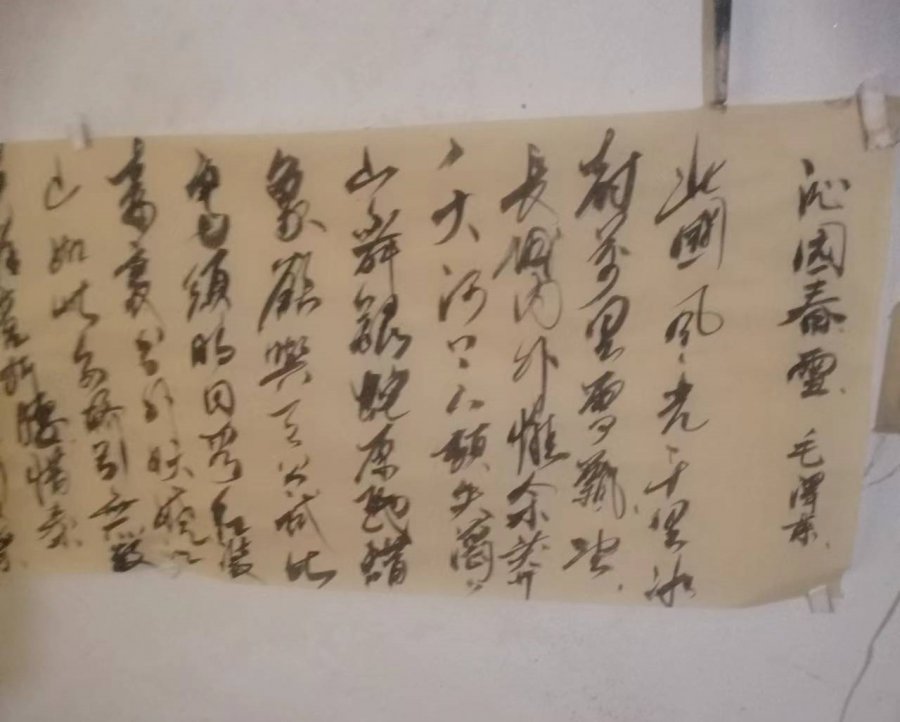 沁园春 雪 毛泽东
北國风光千里冰
封萬里雪飘望
长城内外惟余莽
〻大河上下頓失滔〻
山舞銀蛇原馳蜡
象欲與天公試比
高須晴日看红装
素裹分外妖娆江
山如此多娇引無數
英雄竞折腰惜秦